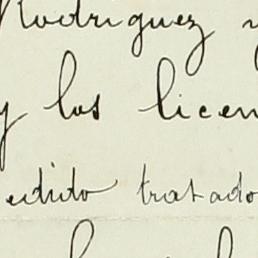 Rodriguez y
y los licen
edido tratado